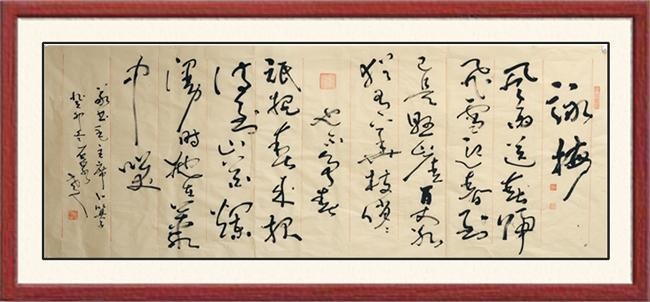 詠梅
風雨送春歸
飛雪迎春到
已是懸崖百丈冰
猶有花枝俏〻
也不爭春
祇把春來報
待到山花爛
漫時她在叢
中咲
毛主席卜算子
癸卯冬